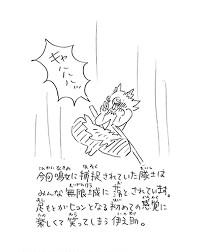 キャハハハ
今回鳴女に捕捉されていた隊士は
みんな無限城に落とされています。
足もとがヒュンとなる初めての感覚に
楽しくて笑ってしまう伊之助。